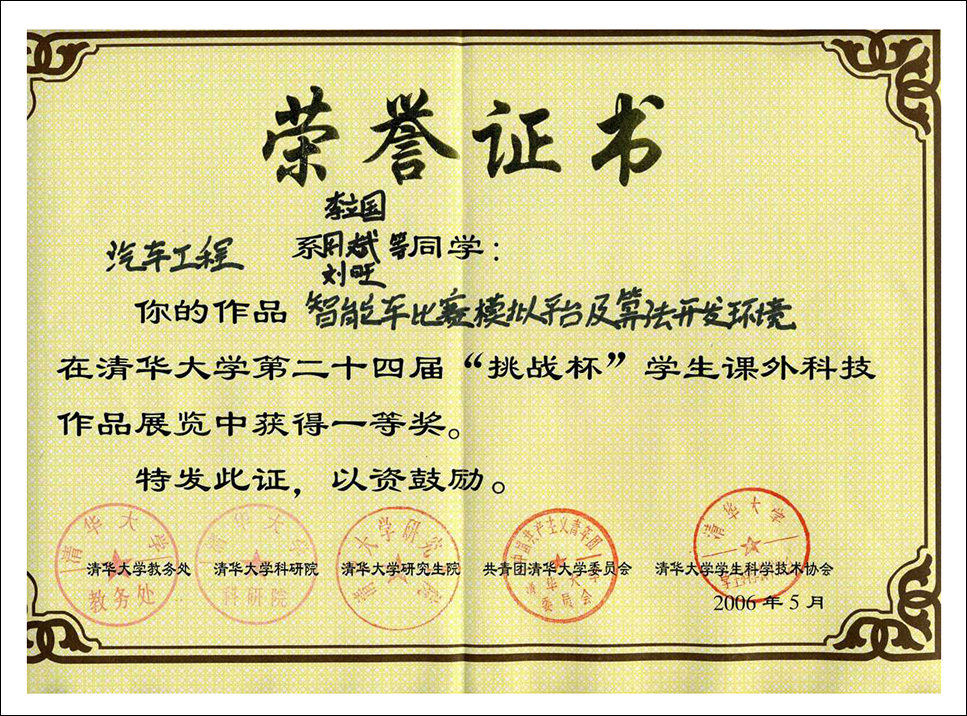 荣誉证书
李立国
汽车工程 系周斌等同学：
刘旺
你的作品 智能车比赛模拟平台及算法开发环境
在清华大学第二十四届“挑战杯”学生课外科技
作品展览中获得一等奖。
特发此证，以资鼓励。
清华大学 教务处
清华大学 科研院
清华大学研究生院
中国共产主义青年团 清华大学 委员会
清华大学
清华大学教务处 清华大学科研院 清华大学研究生院 共青团清华大学委员会 清华大学学生科学技术协会
2006 年 5 月